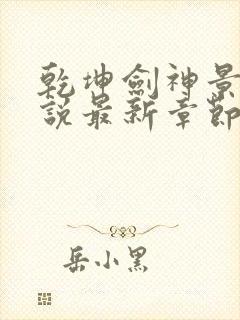 乾坤劍神景
説最新章節
岳小黑